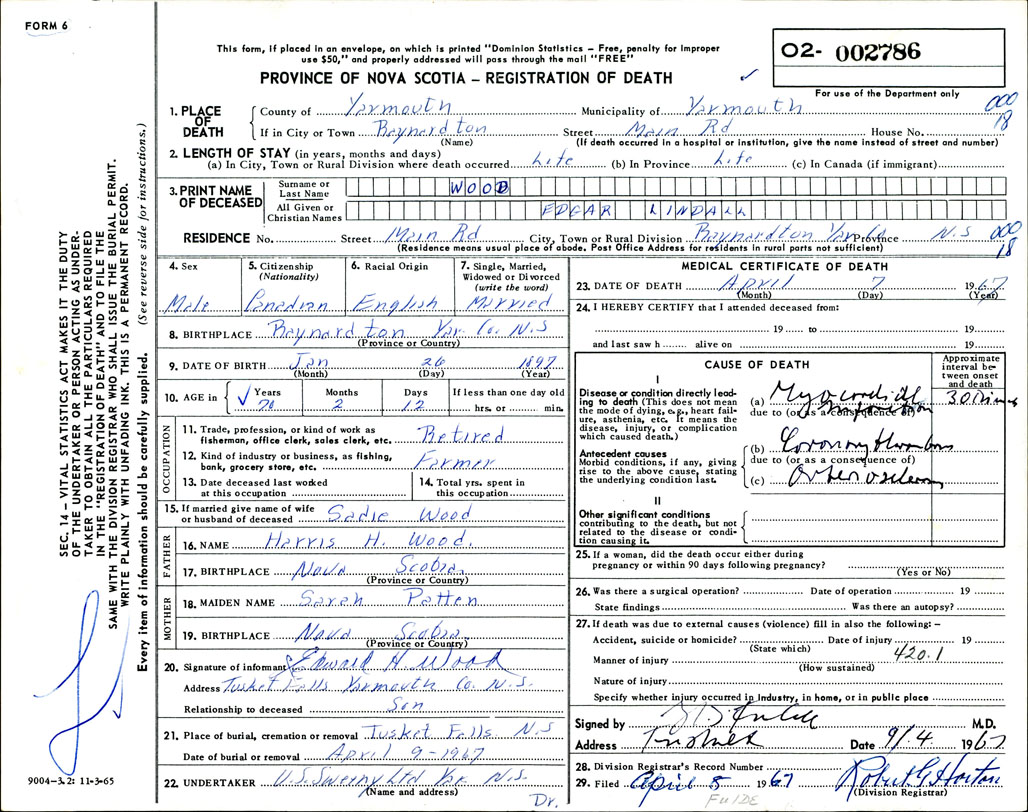 FORM 6
This form, if placed in an envelope, on which is printed "Dominion Statistics – Free, penalty for improper
use $50," and properly addressed will pass through the mail "FREE"
PROVINCE OF NOVA SCOTIA – REGISTRATION OF DEATH
02- 002786
For use of the Department only
1. PLACE OF DEATH
County of Yarmouth Municipality of Yarmouth
000
18
If in City or Town Baynardton Street Main Rd House No.
(Name) (If death occurred in a hospital or institution, give the name instead of street and number)
2. LENGTH OF STAY (in years, months and days)
(a) In City, Town or Rural Division where death occurred Life (b) In Province Life (c) In Canada (if immigrant)
3. PRINT NAME OF DECEASED
Surname or Last Name WOOD
All Given or Christian Names EDGAR LINDALL
RESIDENCE No. Street Main Rd City, Town or Rural Division Baynardton Yar Co Province N.S
000
18
(Residence means usual place of abode. Post Office Address for residents in rural parts not sufficient)
4. Sex
Male
5. Citizenship
(Nationality)
Canadian
6. Racial Origin
English
7. Single, Married,
Widowed or Divorced
(write the word)
Married
8. BIRTHPLACE Baynardton Yar. Co. N.S
(Province or Country)
9. DATE OF BIRTH Jan 26 1897
(Month) (Day) (Year)
10. AGE in Years Months Days If less than one day old
70 2 12 hrs. or min.
OCCUPATION
11. Trade, profession, or kind of work as
fisherman, office clerk, sales clerk, etc. Retired
12. Kind of industry or business, as fishing,
bank, grocery store, etc. Farmer
13. Date deceased last worked
at this occupation
14. Total yrs. spent in
this occupation
15. If married give name of wife
or husband of deceased Sadie Wood
FATHER
16. NAME Harris H. Wood.
17. BIRTHPLACE Nova Scotia
(Province or Country)
MOTHER
18. MAIDEN NAME Sarah Patten
19. BIRTHPLACE Nova Scotia
(Province or Country)
20. Signature of informant Edward H. Wood
Address Tusket Falls Yarmouth Co. N.S.
Relationship to deceased Son
21. Place of burial, cremation or removal Tusket Falls N S
Date of burial or removal April 9-1967
22. UNDERTAKER V.S. Sweeny Ltd Yar N.S.
(Name and address)
MEDICAL CERTIFICATE OF DEATH
23. DATE OF DEATH April 7 1967
(Month) (Day) (Year)
24. I HEREBY CERTIFY that I attended deceased from:
19 to 19
and last saw h alive on 19
CAUSE OF DEATH
Approximate
interval between onset
and death
I
Disease or condition directly leading to death (This does not mean
the mode of dying, e.g., heart failure, asthenia, etc. It means the
disease, injury, or complication
which caused death.)
(a) Myocardial Infarction
due to (or as a consequence of)
Antecedent causes
Morbid conditions, if any, giving
rise to the above cause, stating
the underlying condition last.
(b) Coronary thrombosis
due to (or as a consequence of)
(c)
II
Other significant conditions
contributing to the death, but not
related to the disease or condition causing it.
25. If a woman, did the death occur either during
pregnancy or within 90 days following pregnancy?
(Yes or No)
26. Was there a surgical operation? Date of operation 19
State findings Was there an autopsy?
27. If death was due to external causes (violence) fill in also the following: –
Accident, suicide or homicide? Date of injury 19
(State which)
420.1
Manner of injury
(How sustained)
Nature of injury
Specify whether injury occurred in industry, in home, or in public place
Signed by M.D.
Address Date 9/.4. 1967
28. Division Registrar's Record Number
29. Filed April 8 1967 Robert G Horton
(Division Registrar)
Dr. FulDE
9004-3.2: 11-3-65
SEC. 14 – VITAL STATISTICS ACT MAKES IT THE DUTY
OF THE UNDERTAKER OR PERSON ACTING AS UNDERTAKER TO OBTAIN ALL THE PARTICULARS REQUIRED
IN THE "REGISTRATION OF DEATH" AND TO FILE THE
SAME WITH THE DIVISION REGISTRAR WHO SHALL ISSUE THE BURIAL PERMIT.
WRITE PLAINLY WITH UNFADING INK. THIS IS A PERMANENT RECORD.
Every item of information should be carefully supplied. (See reverse side for instructions.)